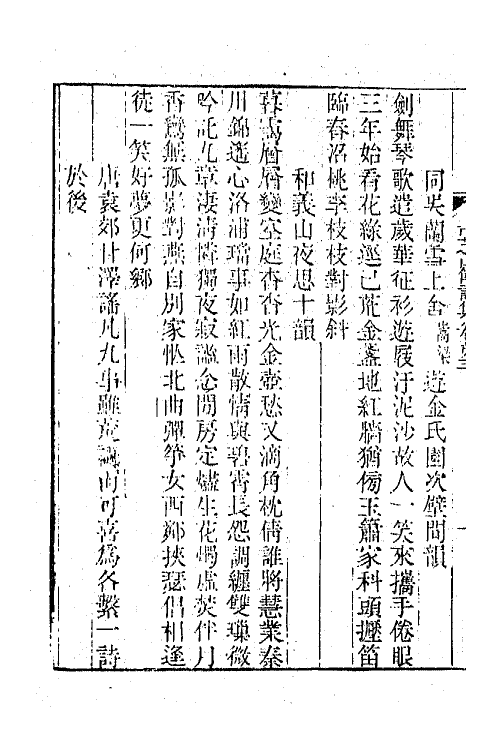 同吳蘭雪上舍嵩梁遊金氏園次壁間韻
劍舞琴歌遣歲華征衫遊屐汙泥沙故人一笑來攜手倦眼
三年始看花綠逕已荒金盞地紅牆猶傍玉簫家科頭擫笛
臨春沼桃李枝枝對影斜
和義山夜思十韻
暮靄層層變空庭杳杳光金壺愁又滴角枕倩誰將慧業秦
川錦遙心洛浦璫事如紅雨散情與碧霄長怨調纏雙瑣微
吟託九章淒清憎獨夜寂謐念閒房定燼生花燭虛熒伴月
香鸞無孤影對燕自別家忙北曲彈箏女西鄰挾瑟倡相逢
徒一笑好夢更何鄉
唐袁郊甘澤謠凡九事雖荒誕而可喜爲各繫一詩
於後